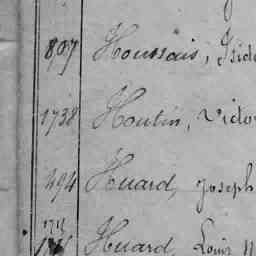 807 Houssais, Isido
1738 Houtin, Victo
494 Huard, Joseph
1717 Huard, Louis